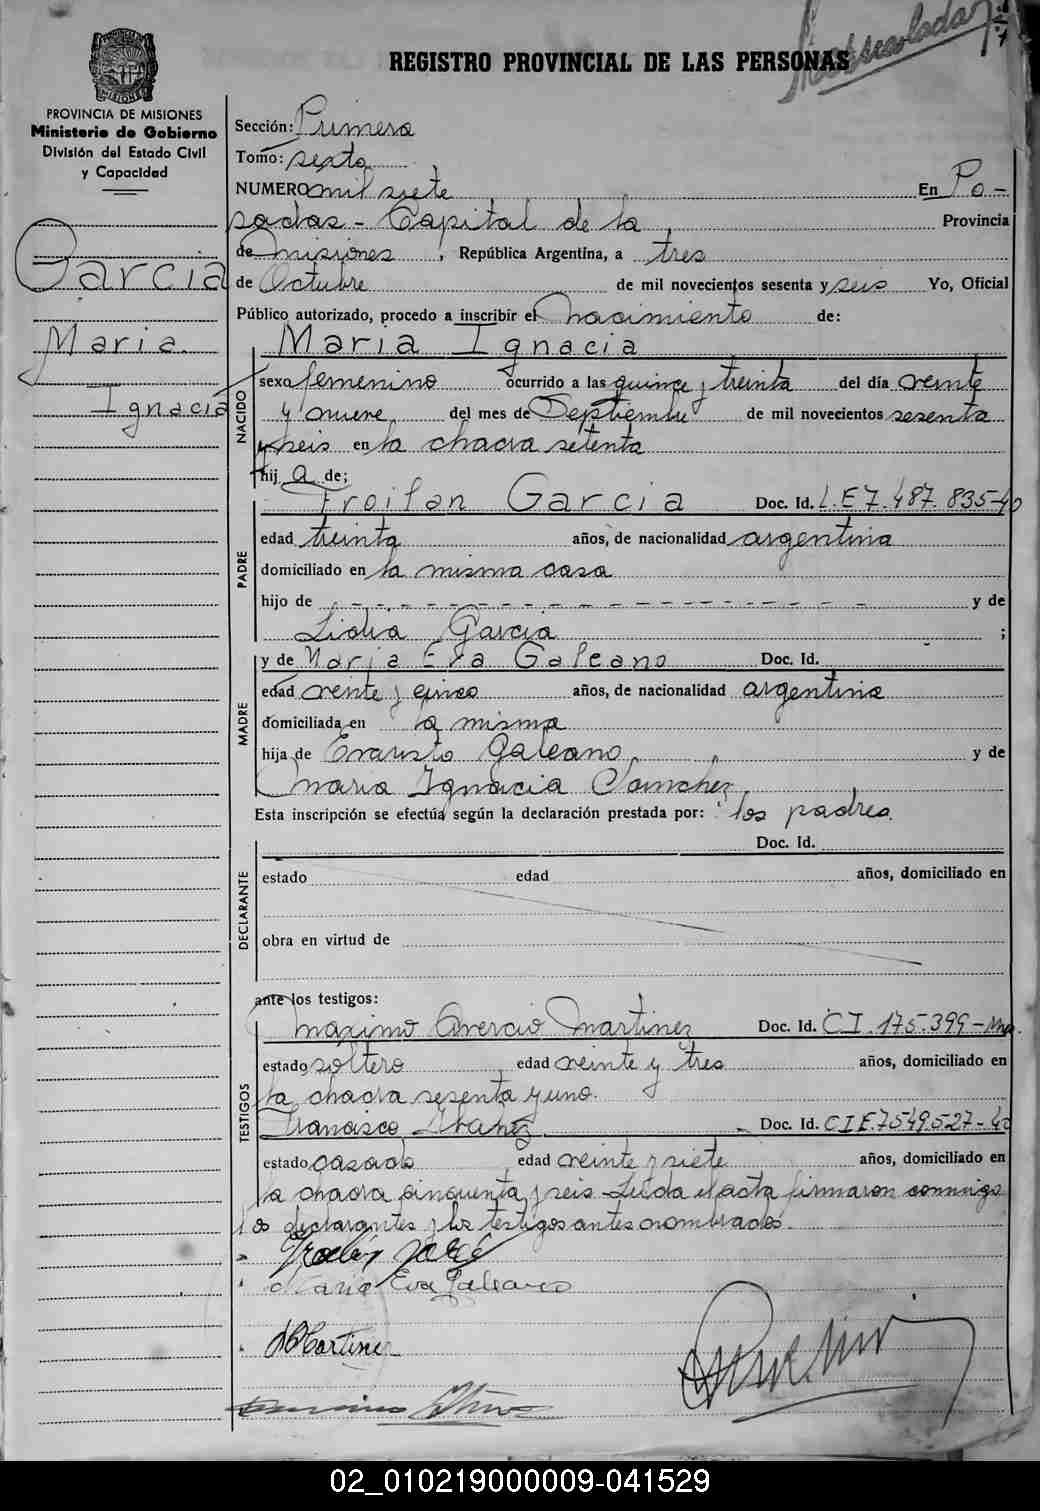 Matriculada
REGISTRO PROVINCIAL DE LAS PERSONAS
PROVINCIA DE MISIONES
Ministerio de Gobierno
División del Estado Civil
y Capacidad
Garcia
Maria
Ignacia
Sección: Primera
Tomo: sexto
NUMERO mil siete En Po-
sadas - Capital de la Provincia
de misiones, República Argentina, a tres
de Octubre de mil novecientos sesenta y seis Yo, Oficial
Público autorizado, procedo a inscribir el nacimiento de:
Maria Ignacia
NACIDO
sexo femenino ocurrido a las quince y treinta del día veinte
y nueve del mes de Septiembre de mil novecientos sesenta
y seis en la chacra setenta
hij a de;
PADRE
Froilan Garcia Doc. Id. L.E 7.487.835-40
edad treinta años, de nacionalidad argentina
domiciliado en la misma casa
hijo de - - - - - - - - - - - - - - - - y de
Lidia Garcia ;
MADRE
y de Maria Eva Galeano Doc. Id.
edad veinte y cinco años, de nacionalidad argentina
domiciliada en la misma
hija de Evaristo Galeano y de
Maria Ignacia Sanchez
Esta inscripción se efectúa según la declaración prestada por: los padres.
DECLARANTE
Doc. Id.
estado edad años, domiciliado en
obra en virtud de
ante los testigos:
TESTIGOS
maximo Avercio Martinez Doc. Id. C I. 175.399-Mnes.
estado soltero edad veinte y tres años, domiciliado en
la chacra sesenta y uno.
Francisco Ibañez - Doc. Id. C I E.7549.527-40
estado casado edad veinte y siete años, domiciliado en
la chacra cincuenta y seis - Leida el acta firmaron conmigo
los declarantes y los testigos antes nombrados.
Maria Eva Galeano
Martinez
02_010219000009-041529